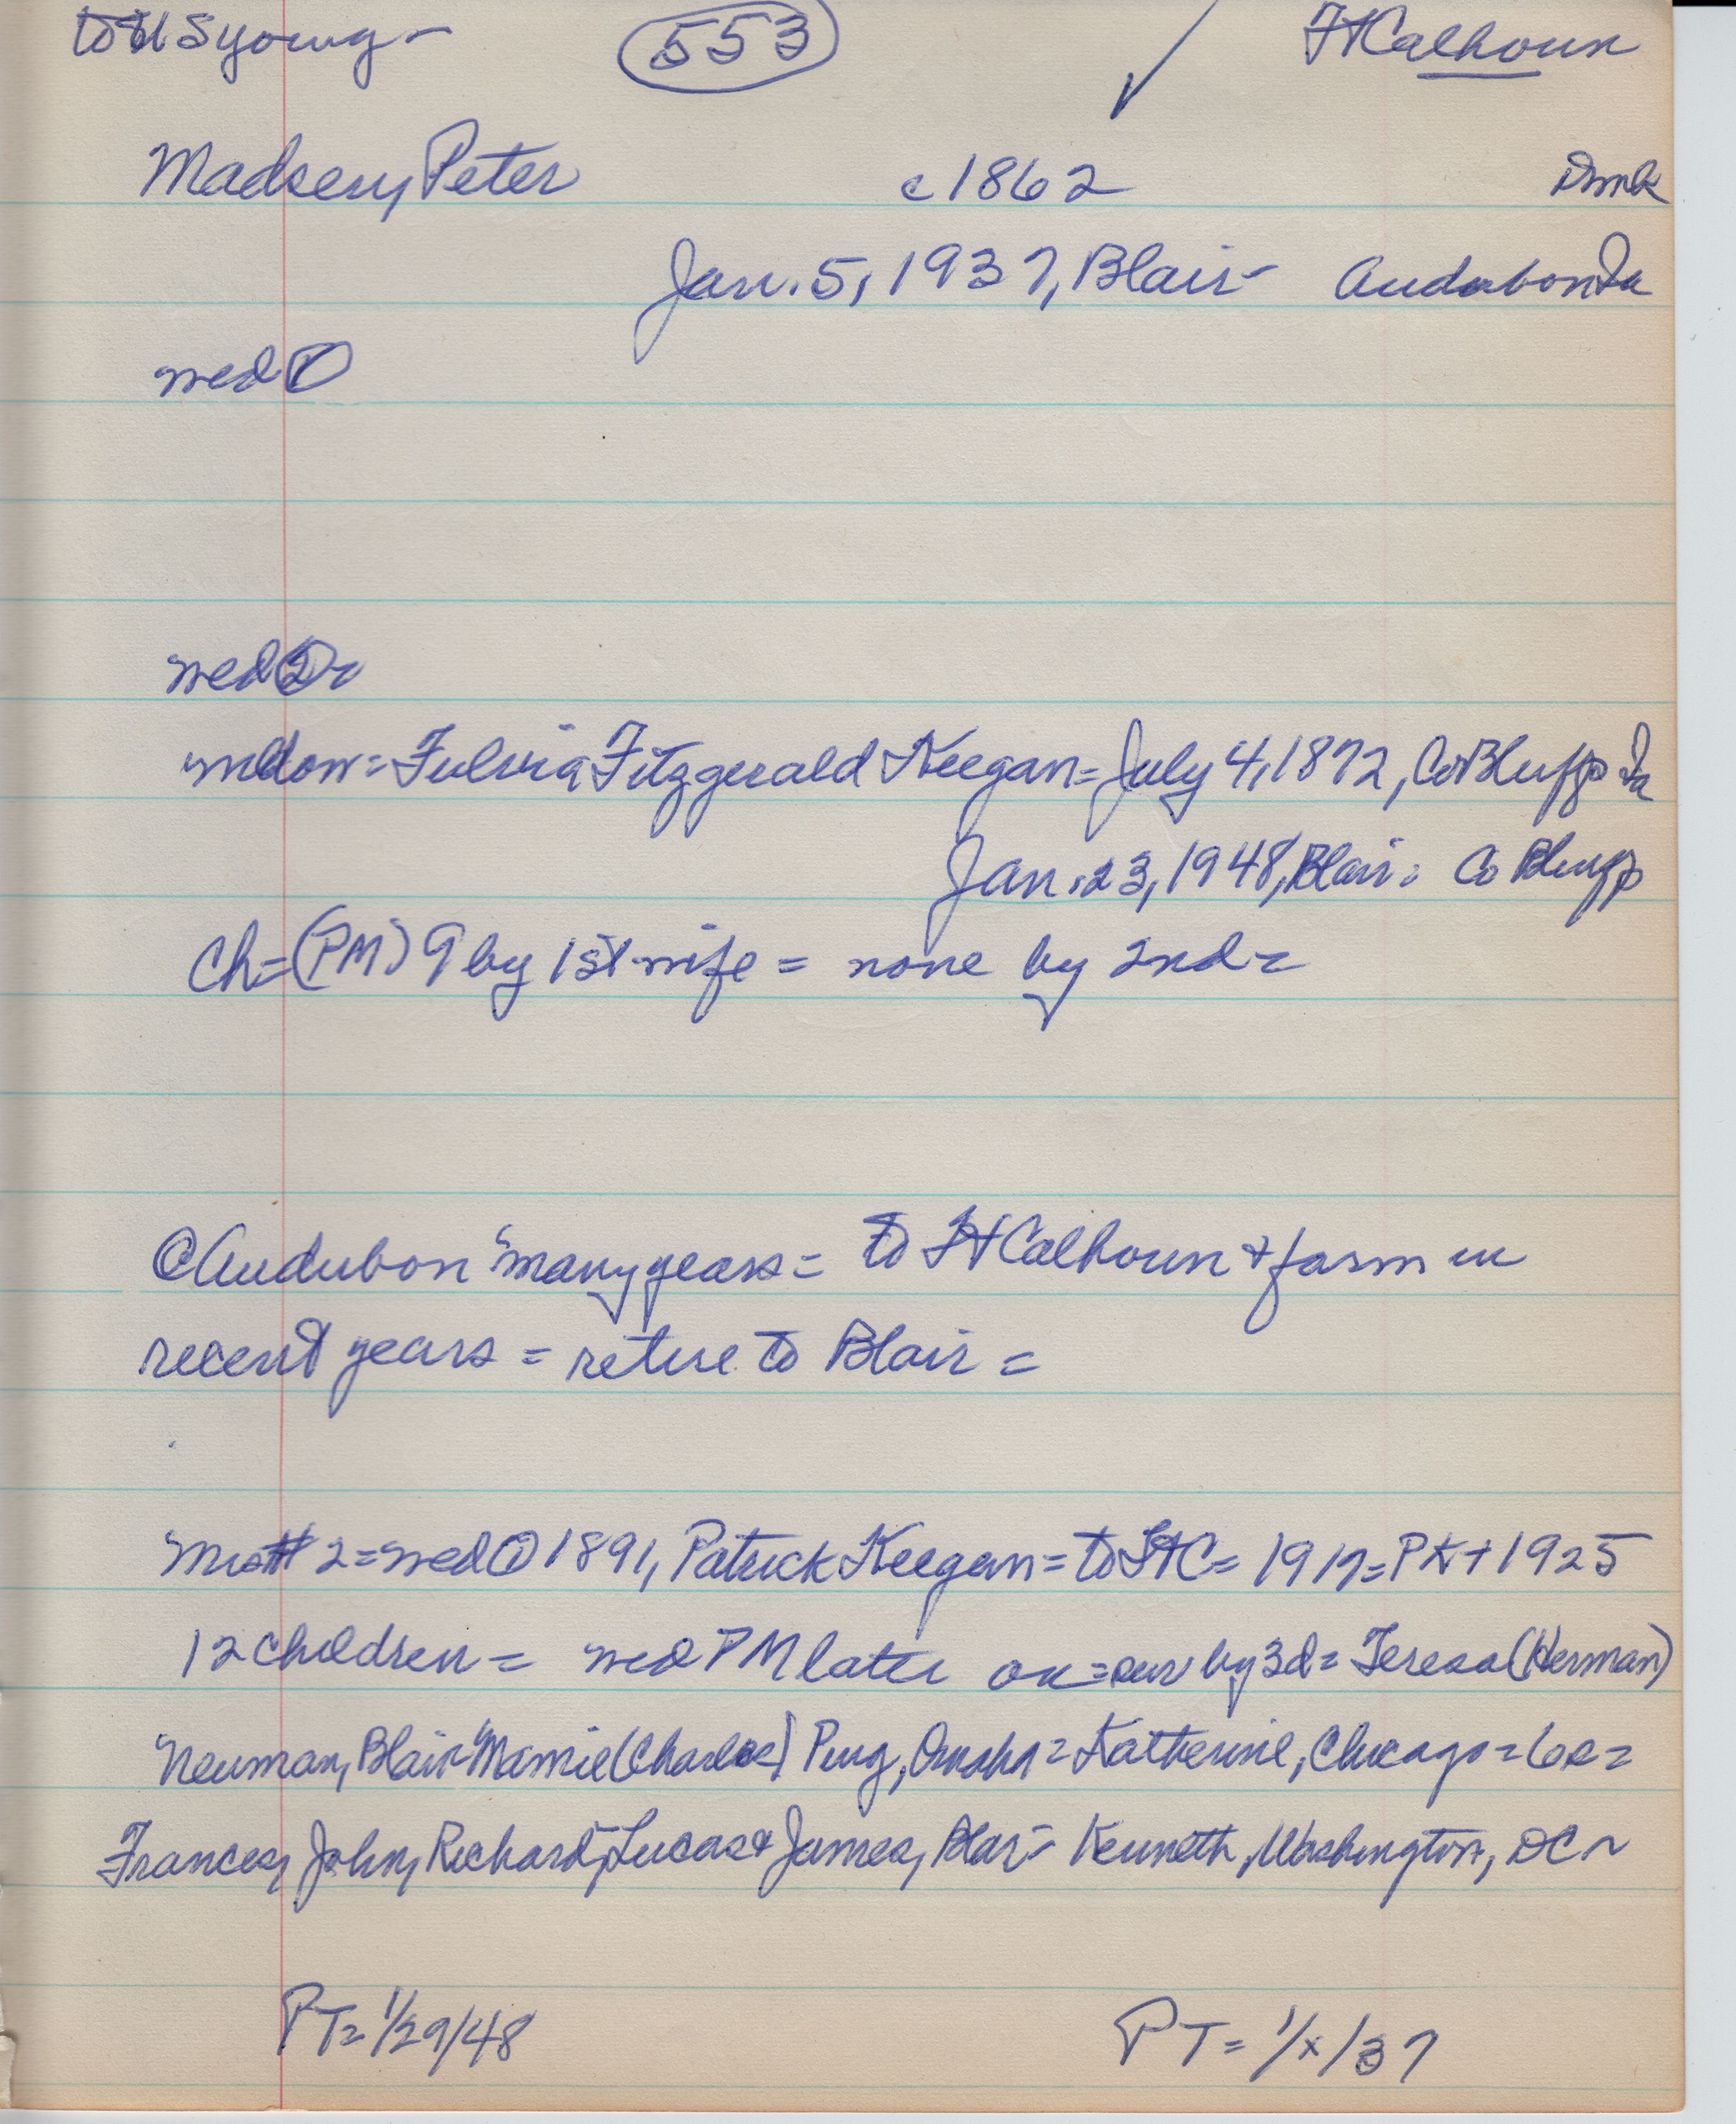 to US young - 553 FtCalhoun
Madsen, Peter c1862 Dmk
Jan. 5, 1937, Blair - Audubon Ia
wed 1
wed 2 -
widow = Fulvia Fitzgerald Keegan = July 4, 1872, Co Bluffs Ia
Jan. 23, 1948, Blair = Co Bluffs
Ch = (PM) 9 by 1st wife = none by 2nd =
@ Audubon "many years = to FtCalhoun & farm in
recent years = retire to Blair =
Mrs # 2 = wed 1 1891, Patrick Keegan = to FtC = 1917 = PK + 1925
12 children = wed PM later on = sur by 3d = Teresa (Herman)
Neuman, Blair - Mamie (Charles) Pung, Omaha = Katherine, Chicago = 6s =
Frances, John, Richard, Lucas & James, Blair - Kenneth, Washington, DC ~
PT = 1/29/48 PT = 1/x/37